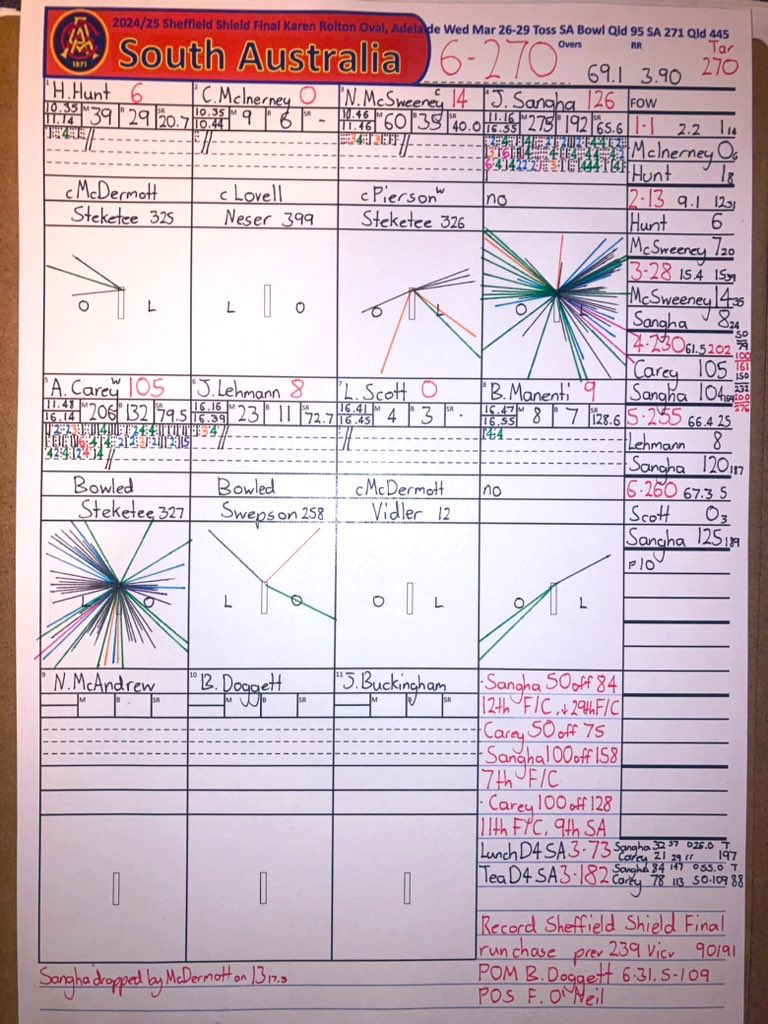 2024/25 Sheffield Shield Final Karen Rolton Oval, Adelaide Wed Mar 26-29 Toss SA Bowl Qld 95 SA 271 Qld 445
1871
South Australia
6-270
Overs
69.1
RR
3.90
Tar
270
1 H.Hunt 6
10.35
11.14
M 39 B 29 SR 20.7
c McDermott
Steketee 325
2 C.McInerney 0
10.35
10.44
M 9 B 6 SR -
c Lovell
Neser 399
3 N.McSweeney c 14
10.46
11.46
M 60 B 35 SR 40.0
c Pierson w
Steketee 326
4 J. Sangha 126
11.16
16.55
M 275 B 192 SR 65.6
no
O L
L O
O L
L
5 A. Carey w 105
11.48
16.14
M 206 B 132 SR 79.5
Bowled
Steketee 327
6 J.Lehmann 8
16.16
16.39
M 23 B 11 SR 72.7
Bowled
Swepson 258
7 L. Scott 0
16.41
16.45
M 4 B 3 SR -
c McDermott
Vidler 12
8 B. Manenti 9
16.47
16.55
M 8 B 7 SR 128.6
144
no
L O
L O
O L
O L
9 N. McAndrew
M B SR
10 B. Doggett
M B SR
11 J. Buckingham
M B SR
FOW
1-1 2.2 1 14
McInerney 0 6
Hunt 1 8
2-13 9.1 12 31
Hunt 6
McSweeney 7 20
3-28 15.4 15 39
McSweeney 14 35
Sangha 8 24
4-230 61.5 202
Carey 105
Sangha 104 169
50
79
100
161
150
232
200
276
5-255 66.4 25
Lehmann 8
Sangha 120 187
6-260 67.3 5
Scott 0 3
Sangha 125 189
P 10
·Sangha 50 off 84
12th F/C, ↓29thF/C
Carey 50 off 75
Sangha 100 off 158
7th F/C
· Carey 100 off 128
11th F/C, 9th SA
Lunch D4 SA 3-73 Sangha 32 57 O 26.0 T
Carey 21 29 rr 197
Tea D4 SA 3-182 Sangha 84 147 O 55.0 T
Carey 78 113 50-109 88
Record Sheffield Shield Final
run chase prev 239 Vic v 90/91
POM B. Doggett 6-31, 5-109
POS F. O'Neil
Sangha dropped by McDermott on 13 17.3